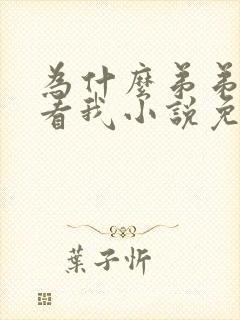 為什麼弟弟
看我小說免
葉子忻